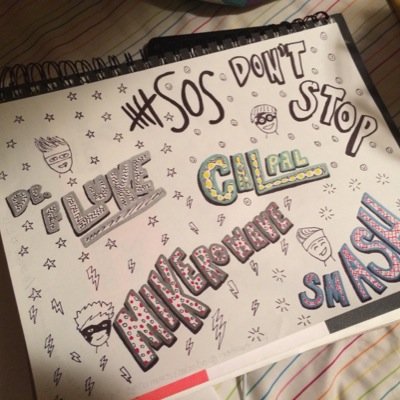 SOS
DON'T
STOP
DR.
FLUKE
CAL PAL
MIKE RO WAVE
SMASH